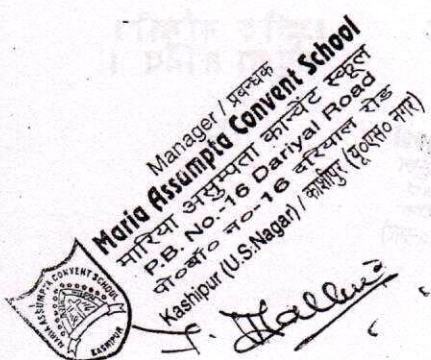 Manager / प्रबन्धक
Maria Assumpta Convent School
मारिया असुम्पता कान्वेंट स्कूल
P.B. No.-16 Dariyal Road
पी०बॉ० न०-16 दरियाल रोड
Kashipur (U.S.Nagar) / काशीपुर (यू०एस० नगर)
MARIA ASSUMPTA CONVENT SCHOOL
KASHIPUR